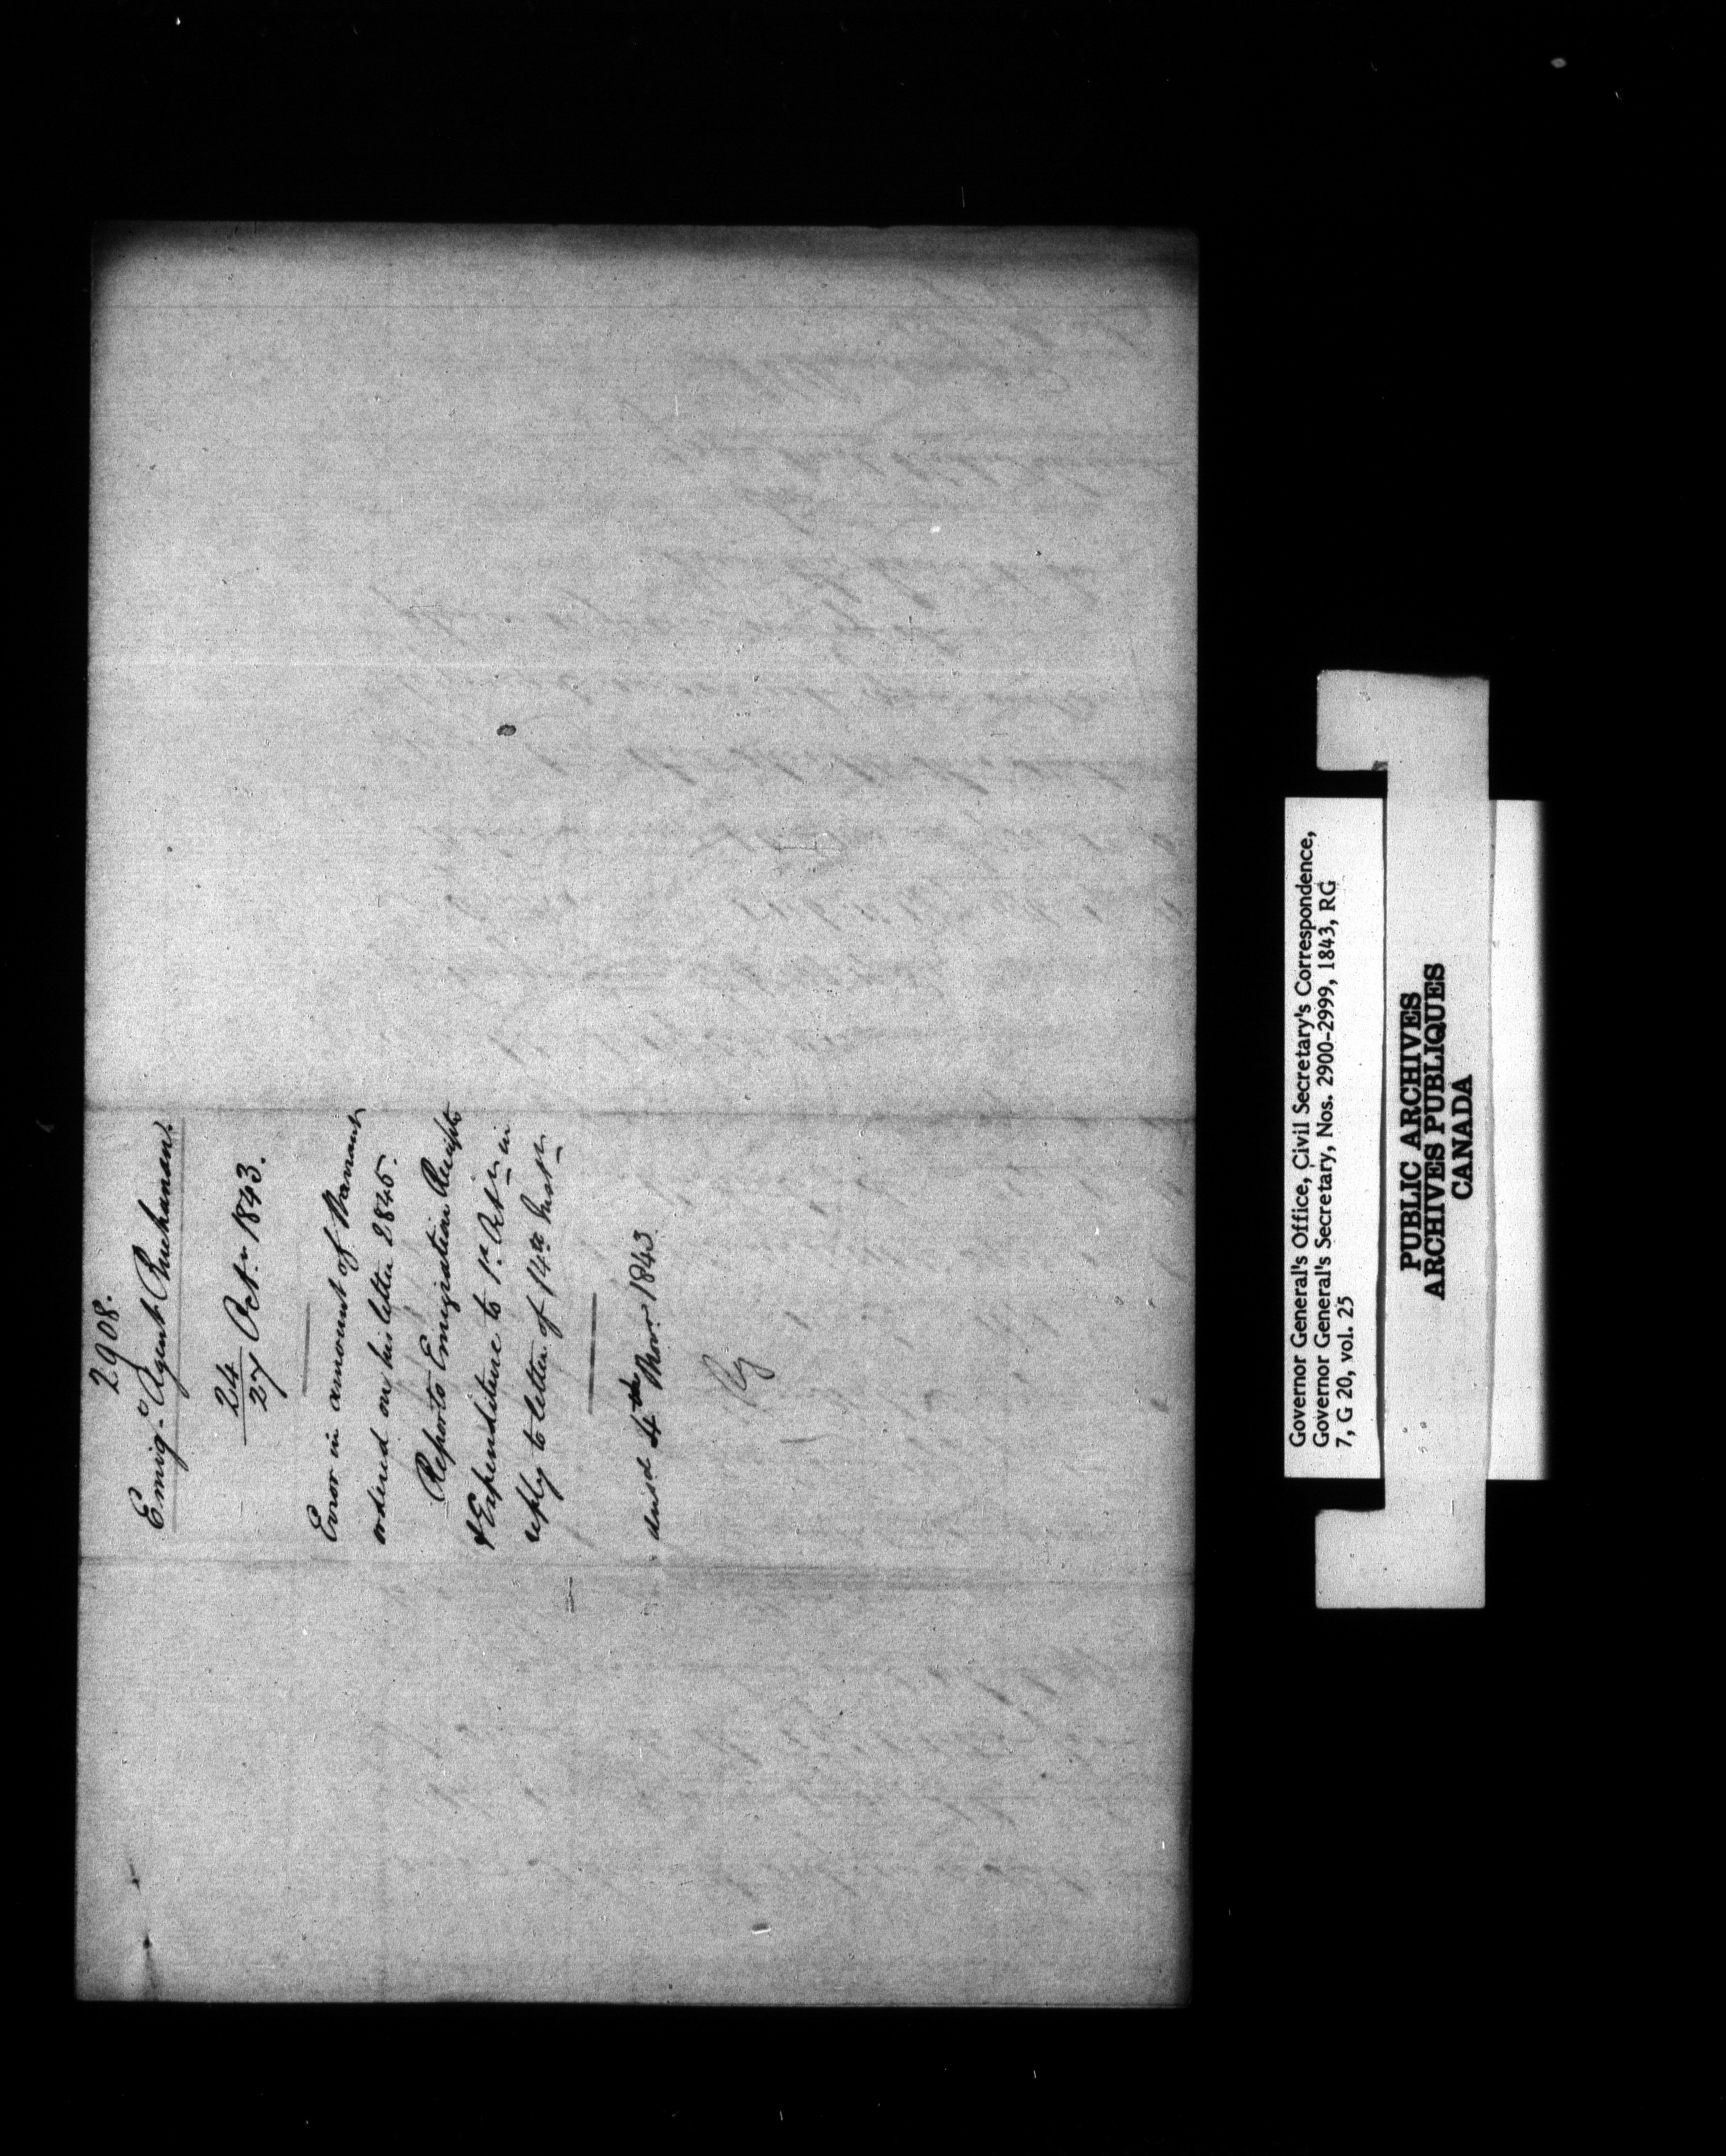 2908.
Emigⁿ Agent Buchanan.
24/27 Octr 1843.
Error in amount of Warrant
ordered on his letter 2845.
Reports Emigration Receipts
& Expenditure to 1st Octr in
reply to letter of 14th Inst
ansd 4th Novr 1843
Governor General's Office, Civil Secretary's Correspondence,
Governor General's Secretary, Nos. 2900-2999, 1843, RG
7, G 20, vol. 25
PUBLIC ARCHIVES
ARCHIVES PUBLIQUES
CANADA